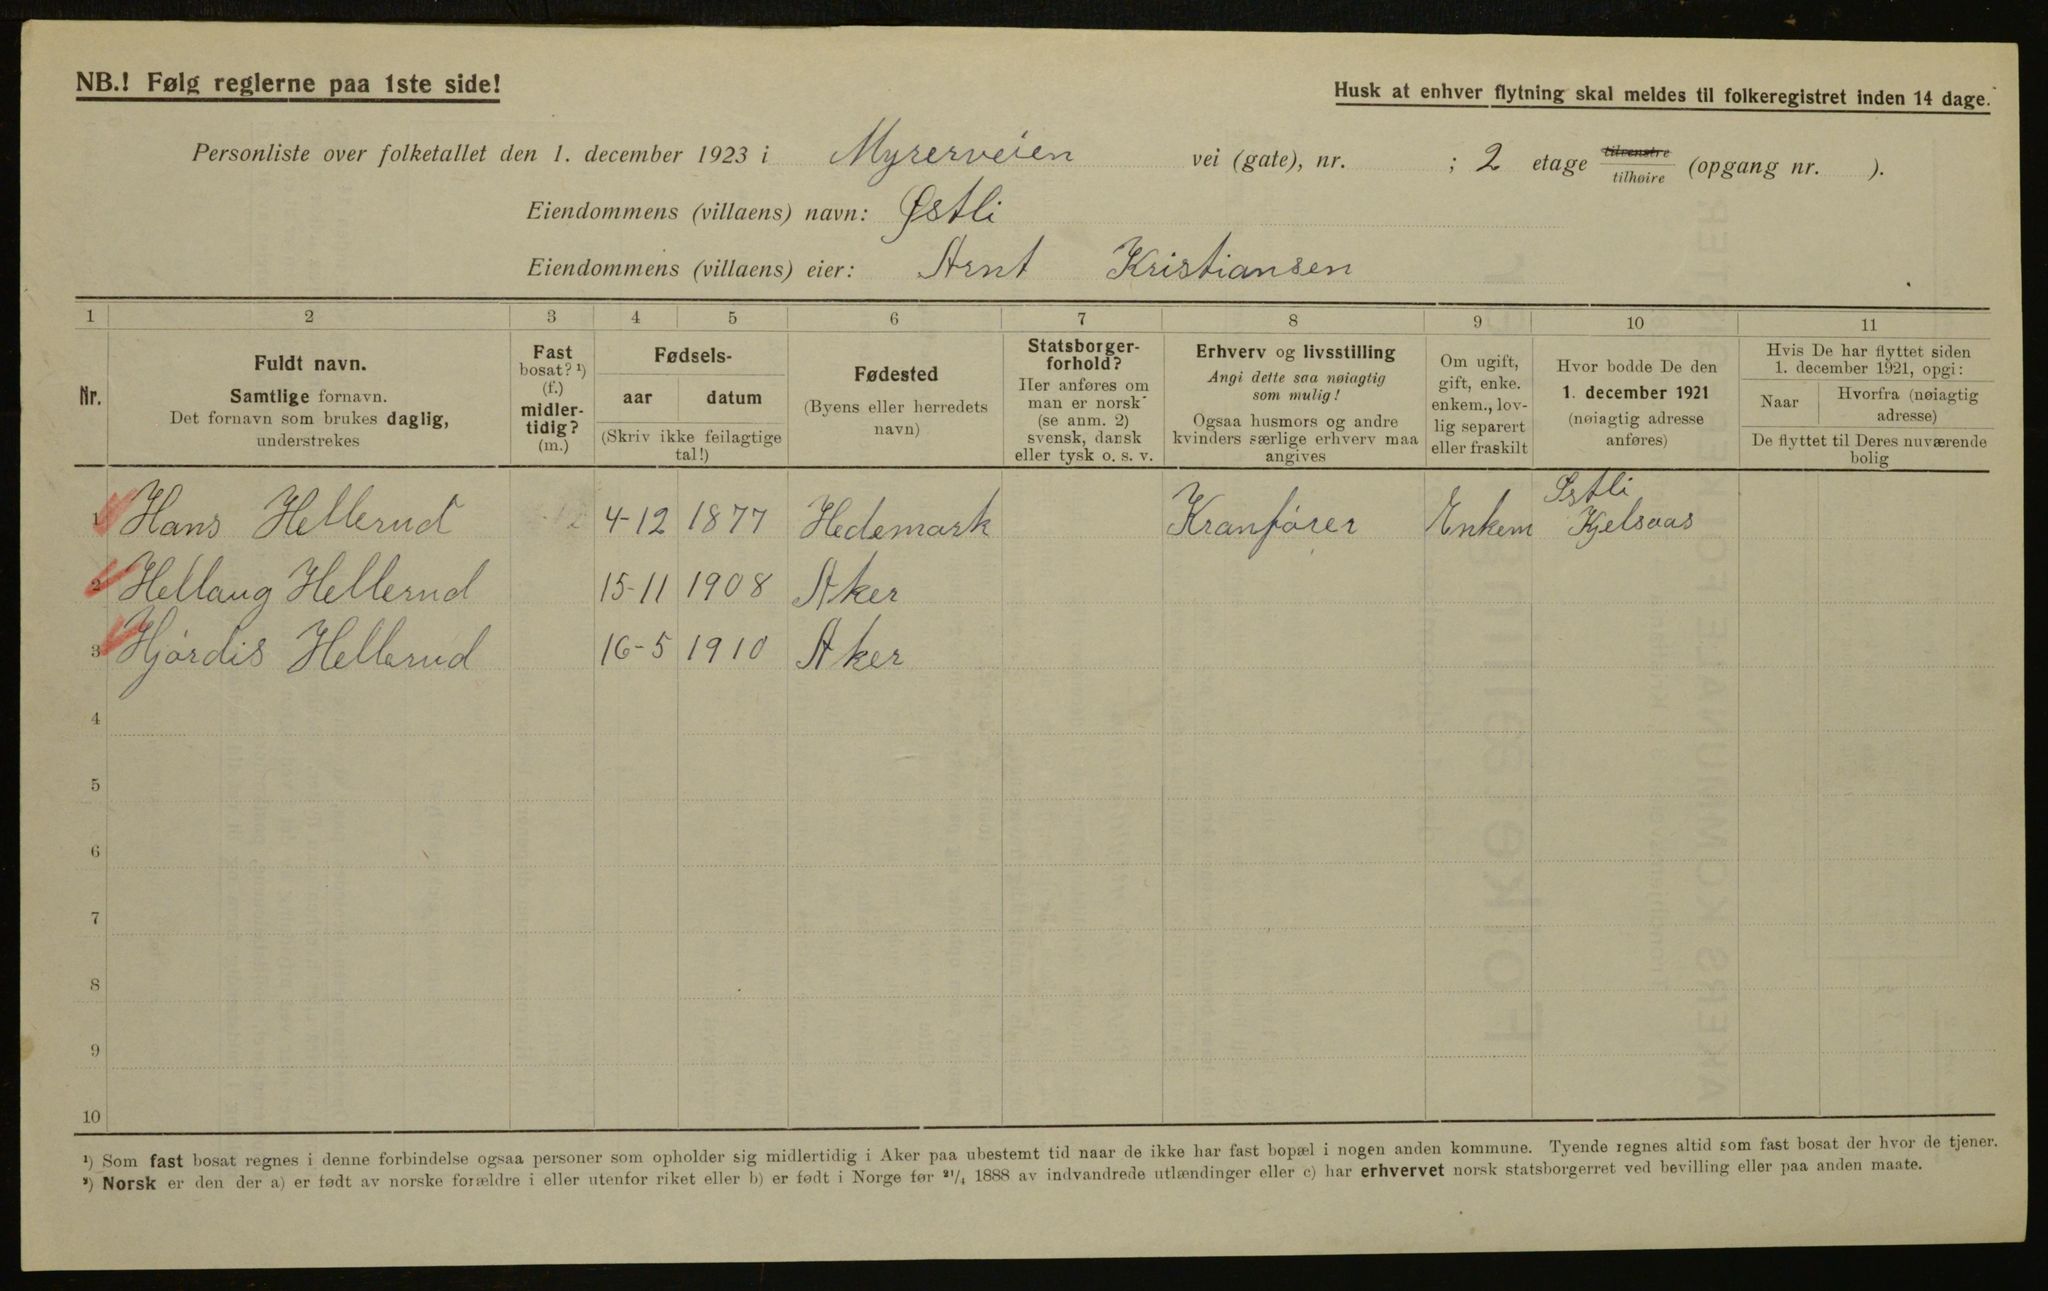 NB.! Følg reglerne paa 1ste side!
Husk at enhver flytning skal meldes til folkeregistret inden 14 dage.
Personliste over folketallet den 1. december 1923 i Myrerveien vei (gate), nr. ; 2 etage tilvenstre tilhøire (opgang nr. ).
Eiendommens (villaens) navn: Østli
Eiendommens (villaens) eier: Arnt Kristiansen
1 2 3 4 5 6 7 8 9 10 11
Nr.
Fuldt navn.
Samtlige fornavn.
Det fornavn som brukes daglig,
understrekes
Fast
bosat? ¹)
(f.)
midler-
tidig?
(m.)
Fødsels-
aar datum
(Skriv ikke feilagtige
tal!)
Fødested
(Byens eller herredets
navn)
Statsborger-
forhold?
Her anføres om
man er norsk
(se anm. 2)
svensk, dansk
eller tysk o. s. v.
Erhverv og livsstilling
Angi dette saa nøiagtig
som mulig!
Ogsaa husmors og andre
kvinders særlige erhverv maa
angives
Om ugift,
gift, enke.
enkem., lov-
lig separert
eller fraskilt
Hvor bodde De den
1. december 1921
(nøiagtig adresse
anføres)
Hvis De har flyttet siden
1. december 1921, opgi:
Naar Hvorfra (nøiagtig
adresse)
De flyttet til Deres nuværende
bolig
Østli
1 Hans Hellerud 4-12 1877 Hedemark Kranfører Enkem Kjelsaas
2 Hellaug Hellerud 15-11 1908 Aker
3 Hjørdis Hellerud 16-5 1910 Aker
4
5
6
7
8
9
10
¹) Som fast bosat regnes i denne forbindelse ogsaa personer som opholder sig midlertidig i Aker paa ubestemt tid naar de ikke har fast bopæl i nogen anden kommune. Tyende regnes altid som fast bosat der hvor de tjener.
²) Norsk er den der a) er født av norske forældre i eller utenfor riket eller b) er født i Norge før ²¹/₄ 1888 av indvandrede utlændinger eller c) har erhvervet norsk statsborgerret ved bevilling eller paa anden maate.